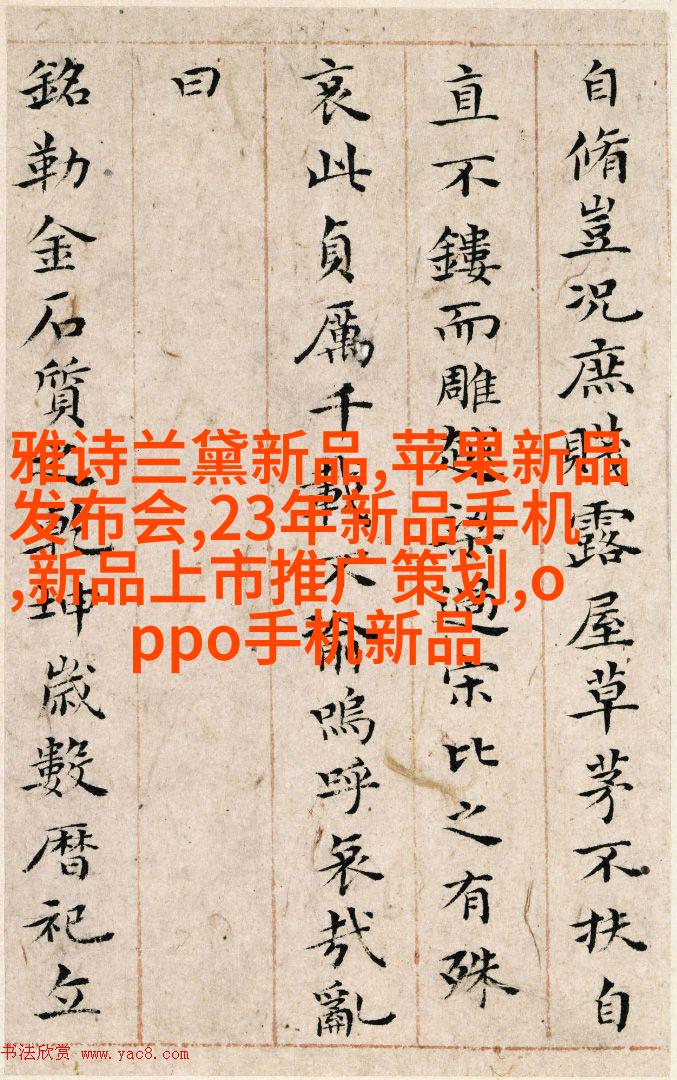 自脩豈況庶賤露屋草茅不扶自
直不鏤而雕越梁過宋比之有殊
哀此貞厲千載不渝嗚呼哀哉亂
曰
銘勒金石質之乾坤歲數暦祀立
雅诗兰黛新品,苹果新品
发布会,23年新品手机
,新品上市推广策划,o
ppo手机新品
书法欣赏 www.yac8.com